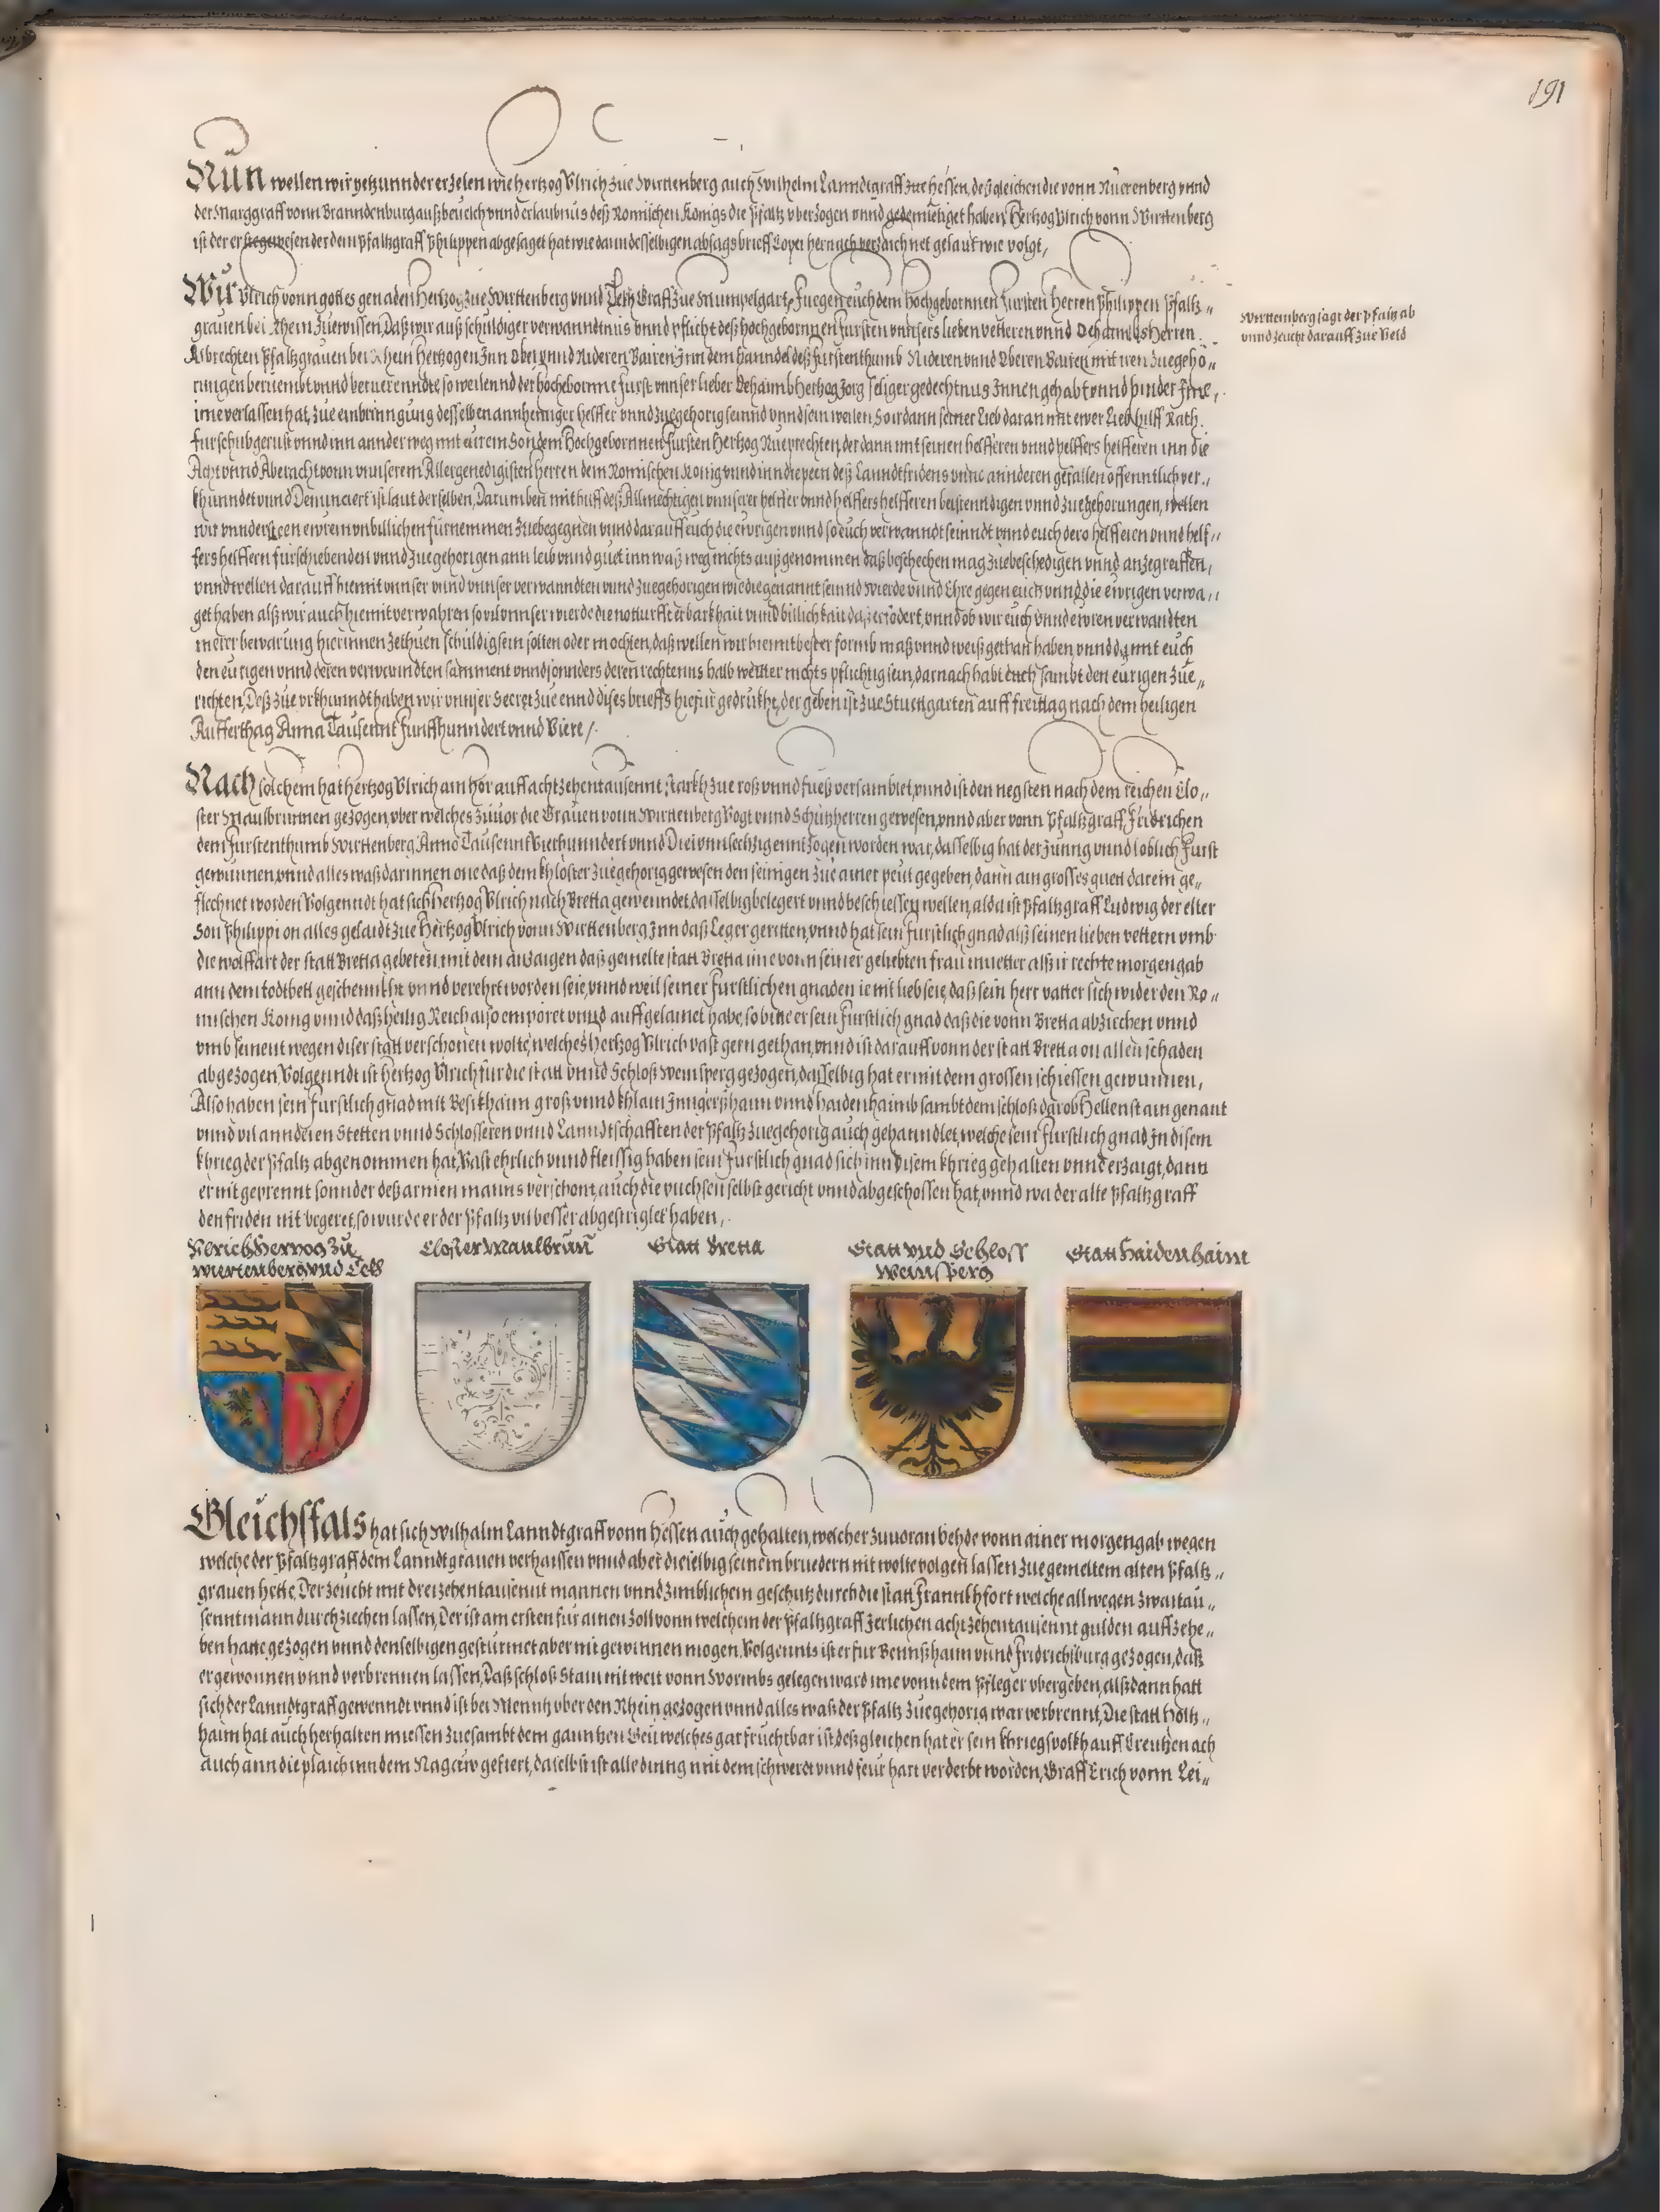 191
Nun wellen wir yetzunnder erzelen wie hertzog Ulrich zue Wirttenberg auch Wilhelm Lanndtgraff zue Hessen, deßgleichen die vonn Nuerenberg vnnd
der Marggraff vonn Branndenburg auß beuelch vnnd erlaubnus deß Romischen Konigs die Pfaltz vberzogen vnnd gedemietiget haben, Hertzog Vlrich vonn Wirttenberg
ist der erste gewesen der dem Pfaltzgraff Philippen abgesaget hat wie dann desselbigen absags brieff Copei hernach verzaichnet gelaut wie volgt,
Wir Vlrich vonn gottes genaden Hertzog zue Wirttenberg vnnd Teckh Graff zue Mumpelgart, Fuegen euch dem hochgebornnen fursten Herren Philippen Pfaltz„
grauen bei Rhein zuewissen, Daß wir auß schuldiger verwanndtnus vnnd pflicht deß hochgebornnen fursten vnnsers lieben vetteren vnnd Schwehers Herren
Albrechten Pfaltzgrauen bei Rhein Hertzogen Inn Ober vnnd Nideren Bairen Inn dem hanndel deß furstenthumb Nideren vnnd Oberen Bairen mit iren zuegehö„
rungen beruembt vnnd so weilennd der hochgebornne furst vnnser lieber Schwehr Hertzog Jorg seliger gedechtnus Innen gehabt vnnd hinder
ime verlassen hat, zue einbrinngung desselben annhenniger helffer vnnd zuegehorig seinnd vnnd sein wellen, So ir dann seiner Lieb daran mit ewer Lieb hilff Rath
furschub gerust vnnd inn annder weg mit eurem Son dem Hochgebornnen fursten Hertzog Rueprechten, der dann mit seinen helfferen vnnd helffers helfferen inn die
Acht vnnd Aberacht vonn vnnserem Allergenedigisten Herren dem Romischen Konig vnnd inn die peen deß Lanndtfridens vnnd annderen gefallen offenntlich ver„
khunndet vnnd Denunciert ist laut derselben, Darumben mit hilff deß Allmechtigen vnnserer helffer vnnd helffers helfferen beistenndigen vnnd zuegehorungen, wellen
wir vnndersteen ewrem vnbillichen furnemmen zuebegegnen vnnd darauff euch die ewrigen vnnd so euch verwanndt seinndt vnnd euch dero helfferen vnnd helf„
fers helffern furschiebenden vnnd zuegehorigen ann leib vnnd guet inn waß weg nichts außgenommen daß beschechen mag zuebeschedigen vnnd anzegreiffen,
vnnd wellen darauff hiemit vnnser vnnd vnnser verwanndten vnnd zuegehorigen wie die genannt seinnd Wierde vnnd Ehre gegen euch vnnd die ewrigen verwa„
get haben alß wir auch hiemit verwahren so vil vnnser wierde die notturfft erbarkhait vnnd billichkait da erfodert, vnnd ob wir euch vnnd ewren verwandten
merer bewarung hierinnen zethuen schuldig sein solten oder mochten, daß wellen wir hiemit bester formb maß vnnd weiß gethan haben, vnnd damit euch
den eurigen vnnd deren verwanndten samment vnnd sonnders deren rechtenns halb weitter nichts pflichtig sein, darnach habt euch sambt den eurigen zue„
richten, Deß zue vrkhunndt haben wir vnnser Secret zue ennd dises brieffs hiefur gedruckht, der geben ist zue Stuttgarten auff freittag nach dem heiligen
Aufferthag Anna Tausennt Funffhunndert vnnd Viere /
Wirttemberg sagt der Pfaltz ab
vnnd zeucht darauff zue Veld
Nach solchem hat hertzog Vlrich ain hör auff achtzehentausennt starkh zue roß vnnd fueß versamblet, vnnd ist den negsten nach dem reichen Clo„
ster Maulbrunnen gezogen, vber welches zuuor die Grauen vonn Wirttenberg Vogt vnnd Schutzherren gewesen, vnnd aber vonn Pfaltzgraff Fridrichen
dem furstenthumb Wirttenberg Anno Tausennt Vierhunndert vnnd Drei vnnsechzig enntzogen worden war, dasselbig hat der Junng vnnd loblich Furst
gewunnen, vnnd alles waß darinnen one daß dem khloster zuegehorig gewesen den seinigen zue ainer peut gegeben, dann ain grosses guett darein ge„
flechnet worden Volgenndt hat sich Hertzog Vlrich nach Bretta gewenndet, dasselbig belegert vnnd beschiessen wellen, alda ist Pfaltzgraff Ludwig der elter
Son Philippi on alles gelaidt zue Hertzog Vlrich vonn Wirttenberg Inn daß Leger geritten, vnnd hat sein furstlich gnad alß seinen lieben vettern vmb
die wolffart der statt Bretta gebeten, mit dem anzaigen daß gemelte statt Bretta ime vonn seiner geliebten frau muetter alß ir rechte morgengab
ann dem todtbett geschennkht vnnd verehrt worden seie, vnnd weil seiner furstlichen gnaden ie mit lieb seie, daß sein herr vatter sich wider den Ro„
mischen Konig vnnd daß heilig Reich also empöret vnnd auffgelainet habe, so bitte er sein furstlich gnad daß die vonn Bretta abziechen vnnd
vmb seinent wegen diser statt verschonen wolte, welches hertzog Vlrich vast gern gethan, vnnd ist darauff vonn der statt Bretta on allen schaden
abgezogen, Volgenndt ist hertzog Vlrich fur die statt vnnd Schloß Weinsperg gezogen, dasselbig hat er mit dem grossen schiessen gewunnen,
Also haben sein furstlich gnad mit Besikhaim groß vnnd khlain Inngerßhaim vnnd haidenhaimb sambt dem schloß darob Hellenstain genant
vnnd vil annderen Stetten vnnd Schlosseren vnnd Lanndtschafften der Pfaltz zuegehorig auch gehanndlet, welche sein furstlich gnad Jn disem
khrieg der Pfaltz abgenommen hat, Vast ehrlich vnnd fleissig haben sein furstlich gnad sich inn disem khrieg gehalten vnnd erzaigt, dann
er nit geprennt sonnder deß armen manns verschont, auch die puchsen selbst gericht vnnd abgeschossen hat, vnnd wa der alte Pfaltzgraff
den friden nit begeret, so wurde er der Pfaltz vil besser abgestriglet haben,
Vlrich Hertzog zu
Wiertenberg vnd Teckh
Closter Maulbrun
Statt Bretta
Statt vnd Schloss
Weinsperg
Statt Haidenhaim
Gleichsfals hat sich Wilhalm Lanndtgraff vonn Hessen auch gehalten, welcher zuuoran vehde vonn ainer morgengab wegen
welche der Pfaltzgraff dem Lanndtgrauen verhaissen vnnd aber dieselbig seinem bruedern nit wolte volgen lassen zue gemeltem alten Pfaltz„
grauen hette, Der zeucht mit dreizehentausennt mannen vnnd zimblichem geschutz durch die statt Frannkhfort welche allwegen zwaitau„
sennt mann durchziechen lassen, Der ist am ersten fur ainen zoll vonn welchem der Pfaltzgraff Jerlichen achtzehentausennt gulden auffzehe„
ben hatte gezogen vnnd denselbigen gesturmet aber nit gewinnen mogen, Volgennts ist er fur Bennßhaim vnnd Fridrichsburg gezogen, daß
er gewonnen vnnd verbrennen lassen, Daß schloß Stain nit weit vonn Wormbs gelegen ward ime vonn dem Pfleger vbergeben, alßdann hatt
sich der Lanndtgraff gewenndt vnnd ist bei Menntz vber den Rhein gezogen vnnd alles waß der Pfaltz zuegehorig war verbrennt, Die statt Holtz„
haim hat auch herhalten muessen zuesambt dem ganntzen Geu welches gar fruchtbar ist, deßgleichen hat er sein khriegsvolkh auff Creutzenach
auch ann die plaich inn dem Nagew gefiert, daselbst ist alle dinng mit dem schwerdt vnnd feur hart verderbt worden, Graff Erich vonn Lei„